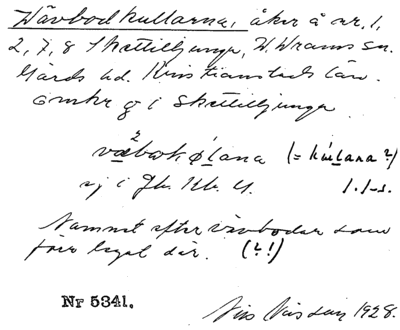 Vävbodkullarna, åker å nr. 1,
2, 7, 8 Skättilljunga, V. Vrams sn.
Gärds hd. Kristianstads län.
i Skättilljunga
(= kúllana?)
ej i Jb. Kb. U.
Namnet efter vävbodar som
förr legat där. (?!)
Nr 5341.
Nils Nilsson 1928.